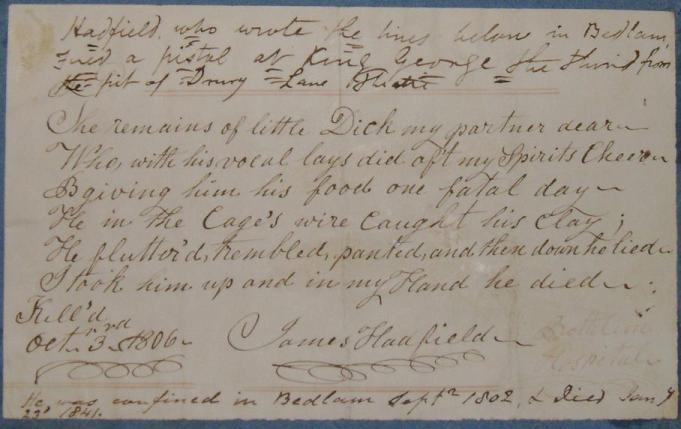 Hadfield, who wrote the lines below in Bedlam,
fired a pistol at King George the Third from
the pit of Drury Lane Theatre
The remains of little Dick my partner dear
Who, with his vocal lays did oft my Spirits Cheer
B giving him his food one fatal day
He in the Cage's wire Caught his Clay;
He flutter'd, trembled, panted, and then down he lied
I took him up and in my Hand he died
Kill'd
Octr 3rd 1806
James Hadfield
Bethlem
Hospital
He was confined in Bedlam Septr 1802, & Died Jany
23d 1841.